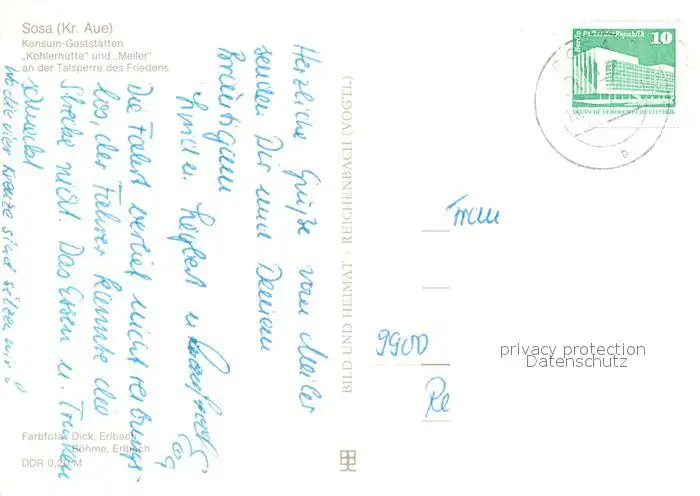 Sosa (Kr. Aue)
Konsum-Gaststätten
„Köhlerhütte" und „Meiler"
an der Talsperre des Friedens
Herzliche Grüße vom Meiler
senden Dir und Deinem
Bräutigam
u. Herbert u.
Die Fahrt verlief nicht reibungs-
los, der Fahrer kannte die
Strecke nicht. Das Essen u. Trinken
schmeckt
wo die vier Kreuze sind sitzen wir
Farbfotos Dick, Erlbach
Böhme, Erlbach
DDR 0,20 M
BILD UND HEIMAT · REICHENBACH (VOGTL)
Berlin Palast der Republik 10
DEUTSCHE DEMOKRATISCHE REPUBLIK
b
Frau
9900
Re
privacy protection
Datenschutz